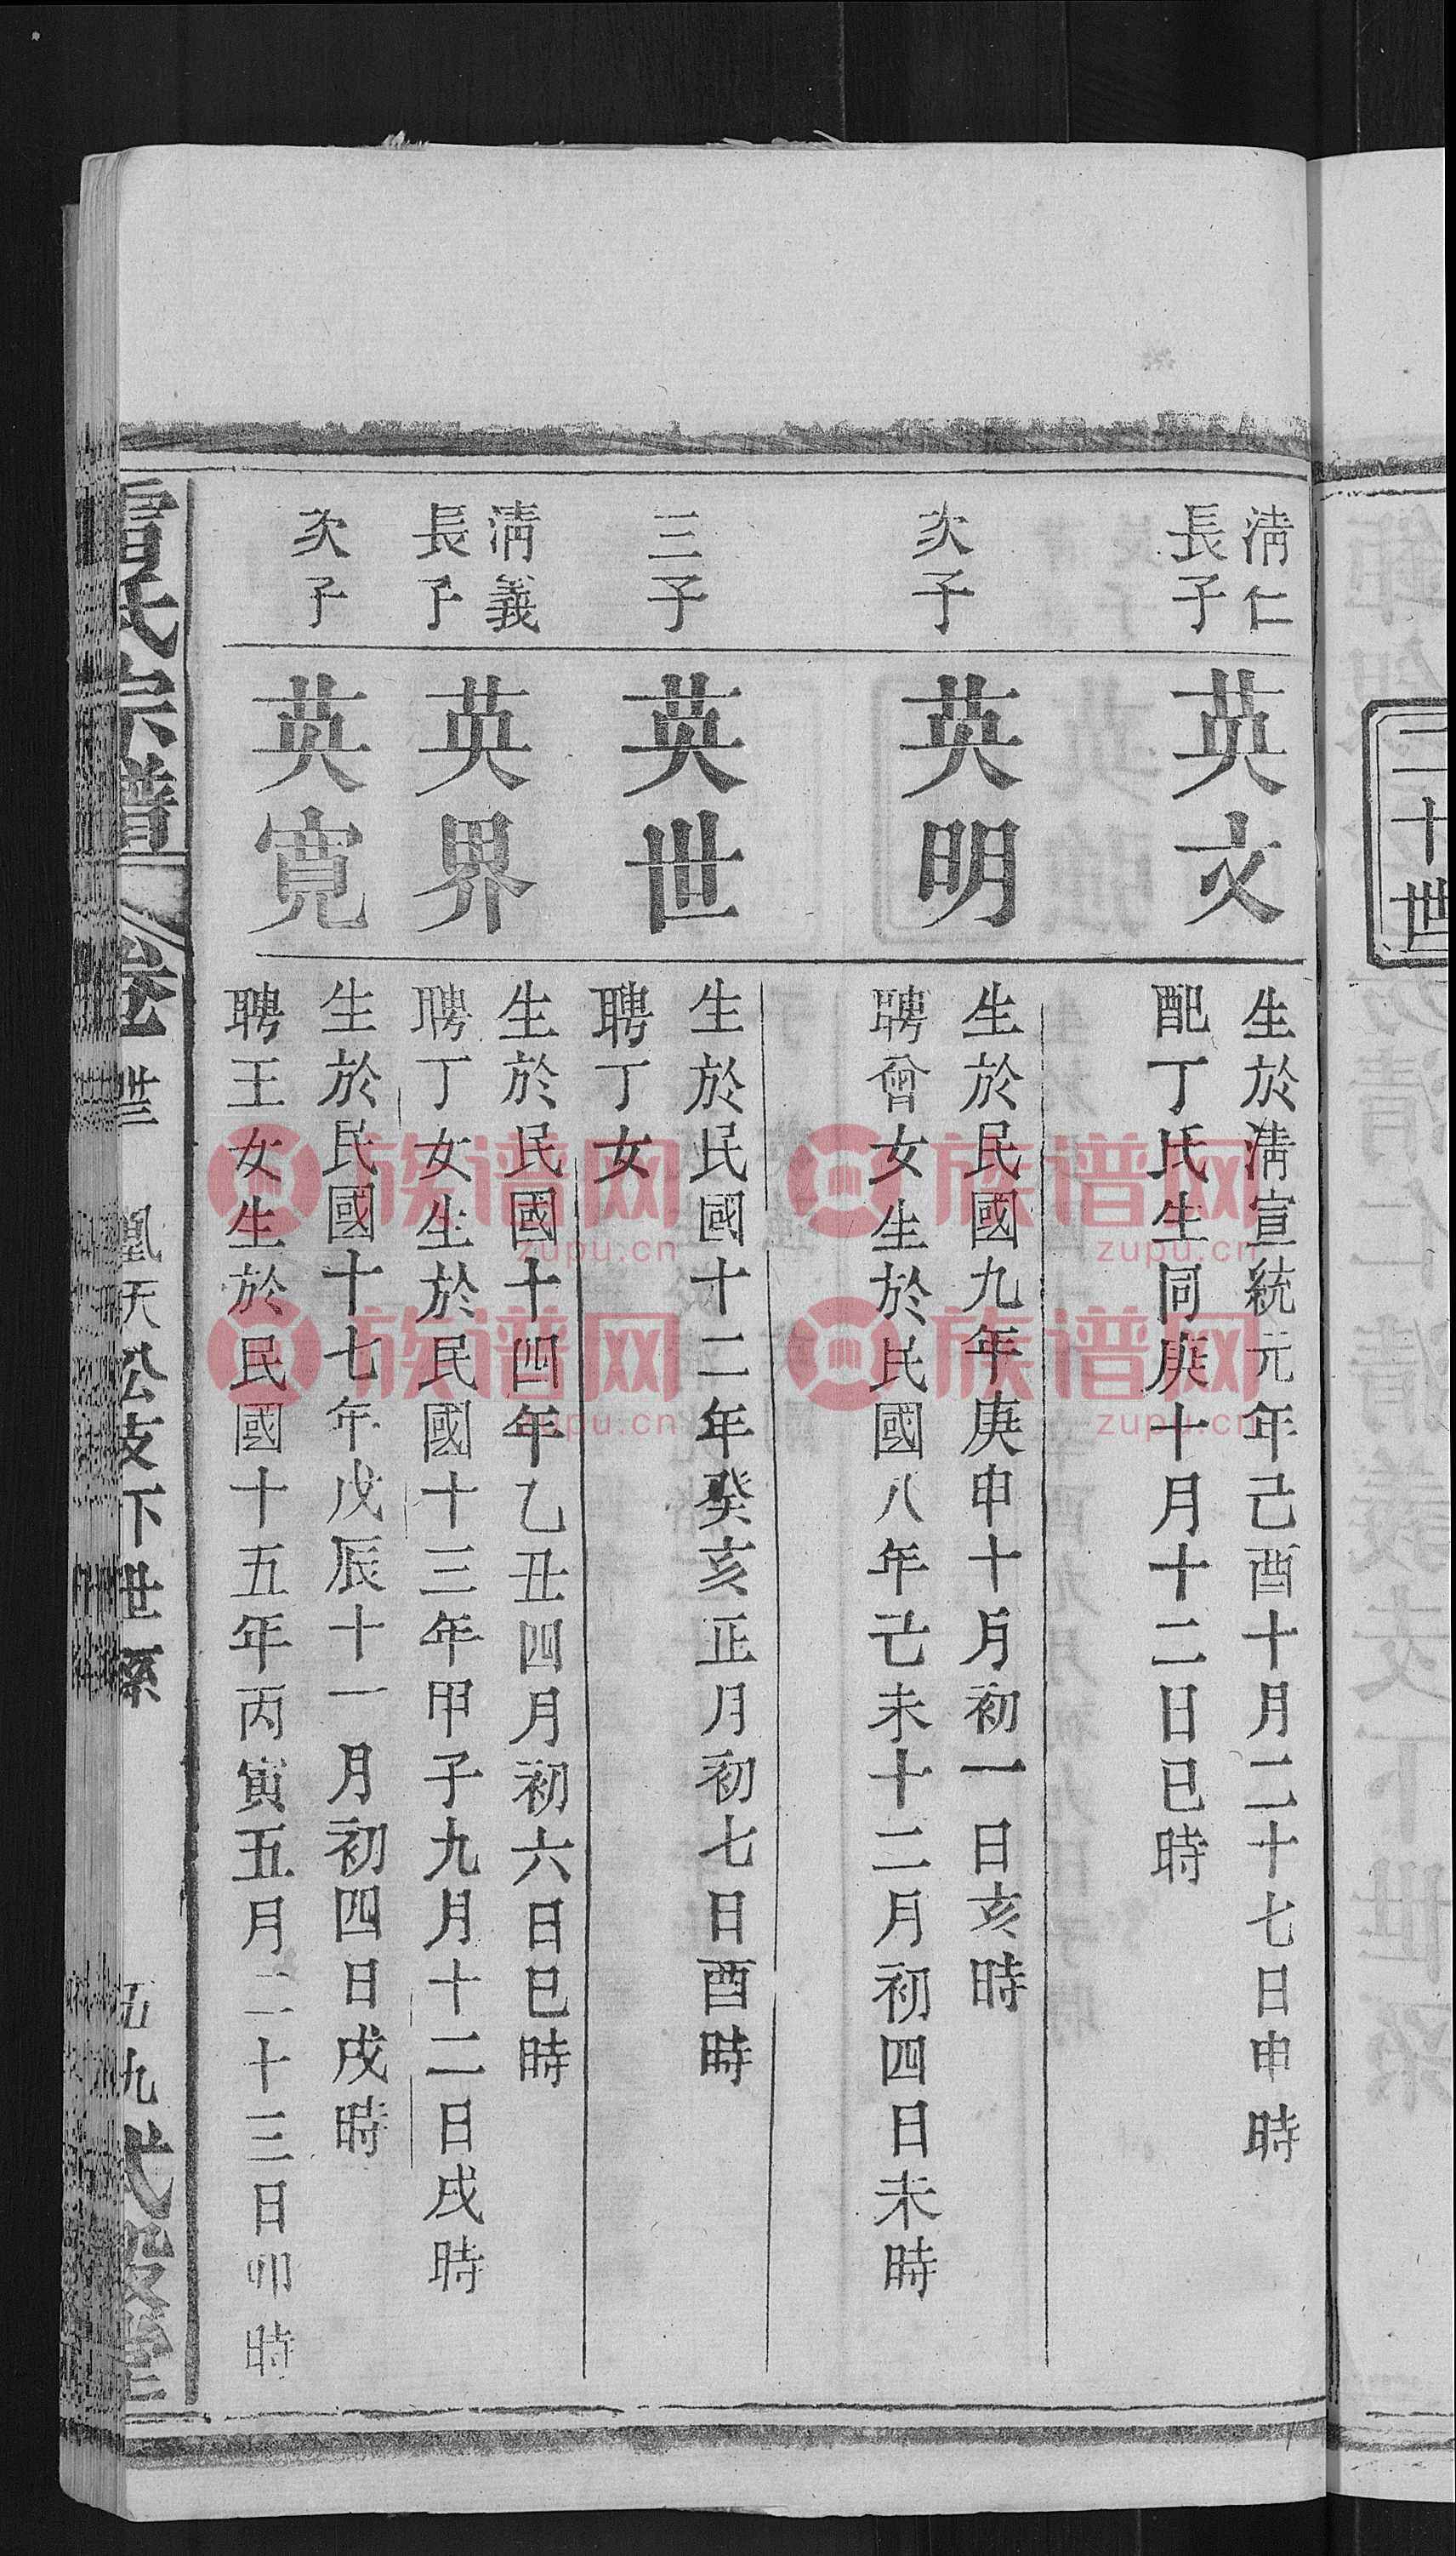 二十世
清仁
長子
英文
生於清宣統元年己酉十月二十七日申時
配丁氏生同庚十月十二日巳時
次子
英明
生於民國九年庚申十月初一日亥時
聘曾女生於民國八年己未十二月初四日未時
三子
英世
生於民國十二年癸亥正月初七日酉時
聘丁女
清義
長子
英界
生於民國十四年乙丑四月初六日巳時
聘丁女生於民國十三年甲子九月十二日戌時
次子
英寬
生於民國十七年戊辰十一月初四日戌時
聘王女生於民國十五年丙寅五月二十三日卯時
氏宗譜
卷
公支下世系
五九
族谱网
zupu.cn
族谱网
zupu.cn
族谱网
zupu.cn
族谱网
zupu.cn